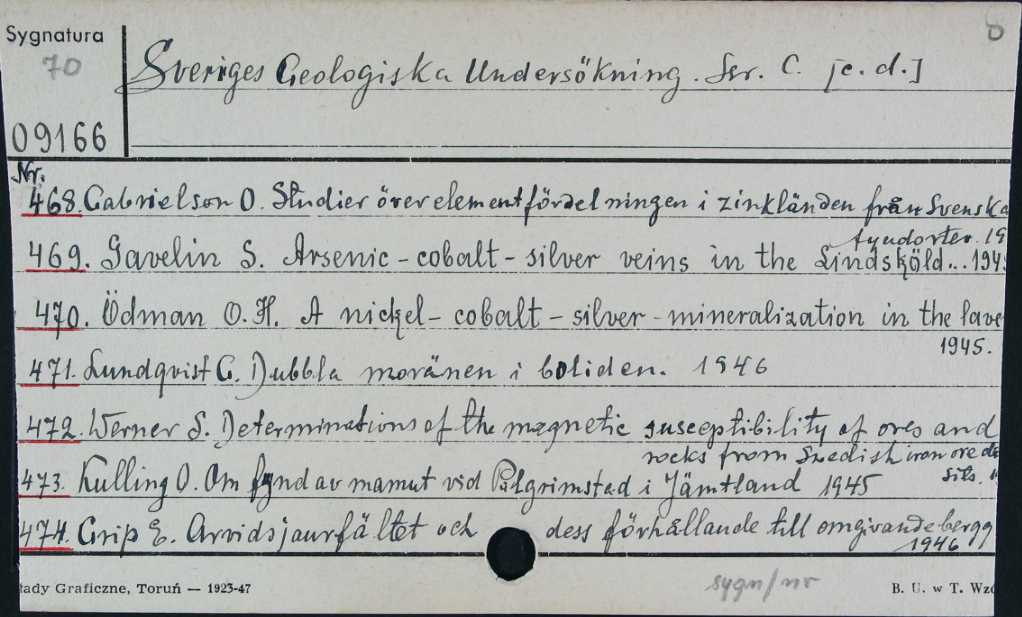 8
Sygnatura
70
Sveriges Geologiska Undersökning. Ser. C. [c.d.]
09166
Nr.
468. Gabrielson O. Studier över elementfördelningen i zinkländen från Svenska
fyndorter. 19
469. Gavelin S. Arsenic-cobalt-silver veins in the Lindsköld... 194
470. Ödman O.H. A nickel-cobalt-silver-mineralization in the Lave
1945.
471. Lundqvist G. Dubbla moränen i boliden. 1946
472. Werner S. Determinations of the magnetic susceptibility of ores and
rocks from Swedish iron ore de
473. Kulling O. Om fynd av mamut vid Pilgrimstad i Jämtland 1945
474. Grip E. Arvidsjaurfältet och dess förhållande till omgivande bergg
1946
łady Graficzne, Toruń — 1923-47
sygn/nr
B. U. w T. Wzó